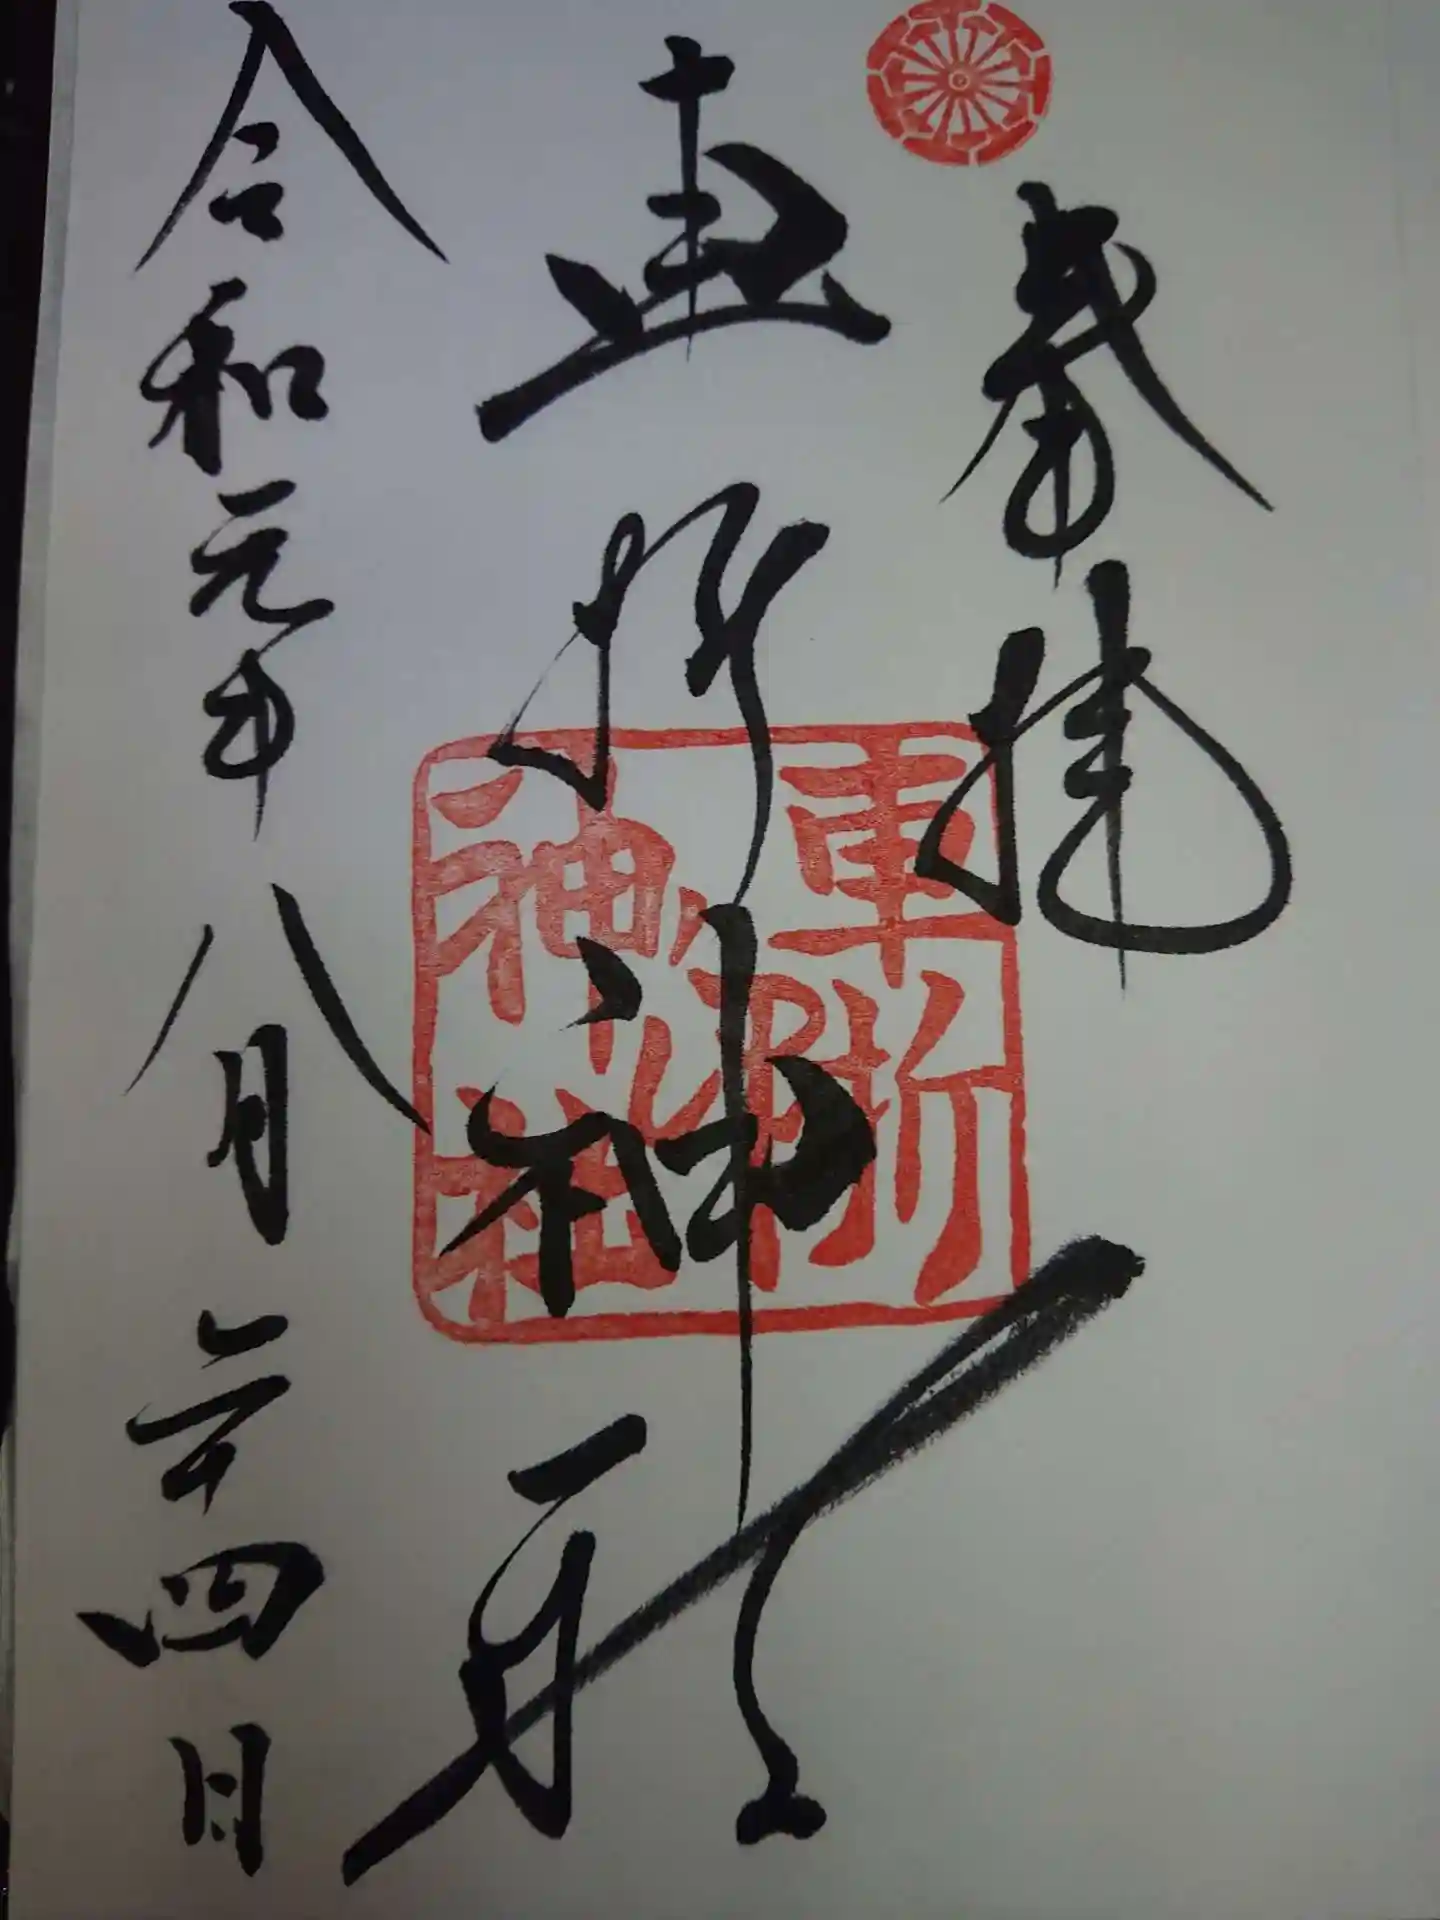 奉拝
車折神社
令和元年八月二十四日
車折
神社